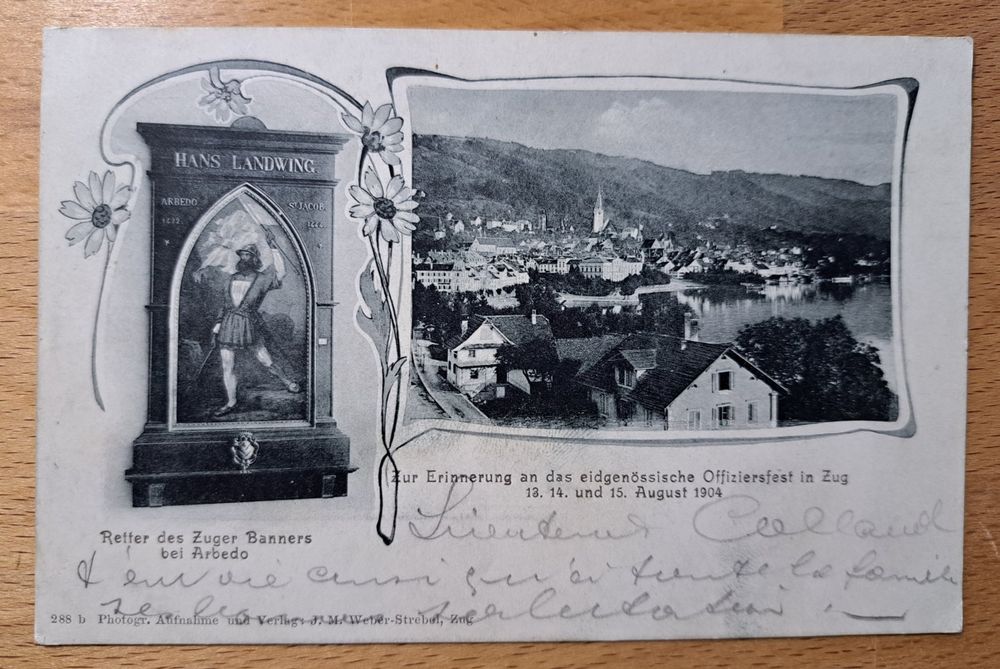 HANS LANDWING
ARBEDO
1422
ST JACOB
Zur Erinnerung an das eidgenössische Offiziersfest in Zug
13. 14. und 15. August 1904
Retter des Zuger Banners
bei Arbedo
Lieutenant
ainsi qu'à toute la famille
288 b Photogr. Aufnahme und Verlag: J. M. Weber-Strebel, Zug